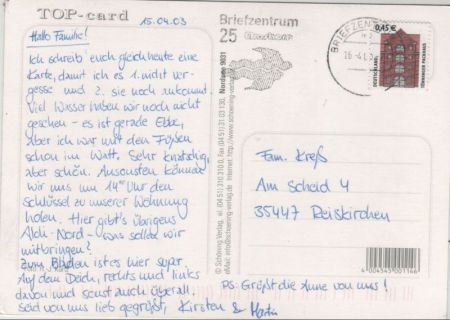 TOP-card
15.04.03
Hallo Familie!
Ich schreib' euch gleich heute eine
Karte, damit ich es 1. nicht ver-
gesse und 2. sie noch ankommt.
Viel Wasser haben wir noch nicht
gesehen - es ist gerade Ebbe,
Aber ich war mit den Füßen
schon im Watt. Sehr
aber schön. Ansonsten können
wir uns um 14°° Uhr den
Schlüssel zu unserer Wohnung
holen. Hier gibt's übrigens
Aldi-Nord - was sollte wir
mitbringen?
Zum Baden ist es hier super.
Auf dem Deich, rechts und links
davon und sonst auch überall.
Seid von uns lieb gegrüßt, Kirsten & Martin
Briefzentrum
25
BRIEFZEN
0,45 €
DEUTSCHLAND
TÖNNINGER PACKHAUS
Nordsee 9801
© Schöning Verlag, Fax (04 51) 31 03 130,
eMail: info@schoening-verlag.de Internet: http://www.schoening-verlag.de
Fam. Kreß
Am Scheid 4
35447 Reiskirchen
4 004545 001166
PS: Grüßt die Anne von uns!